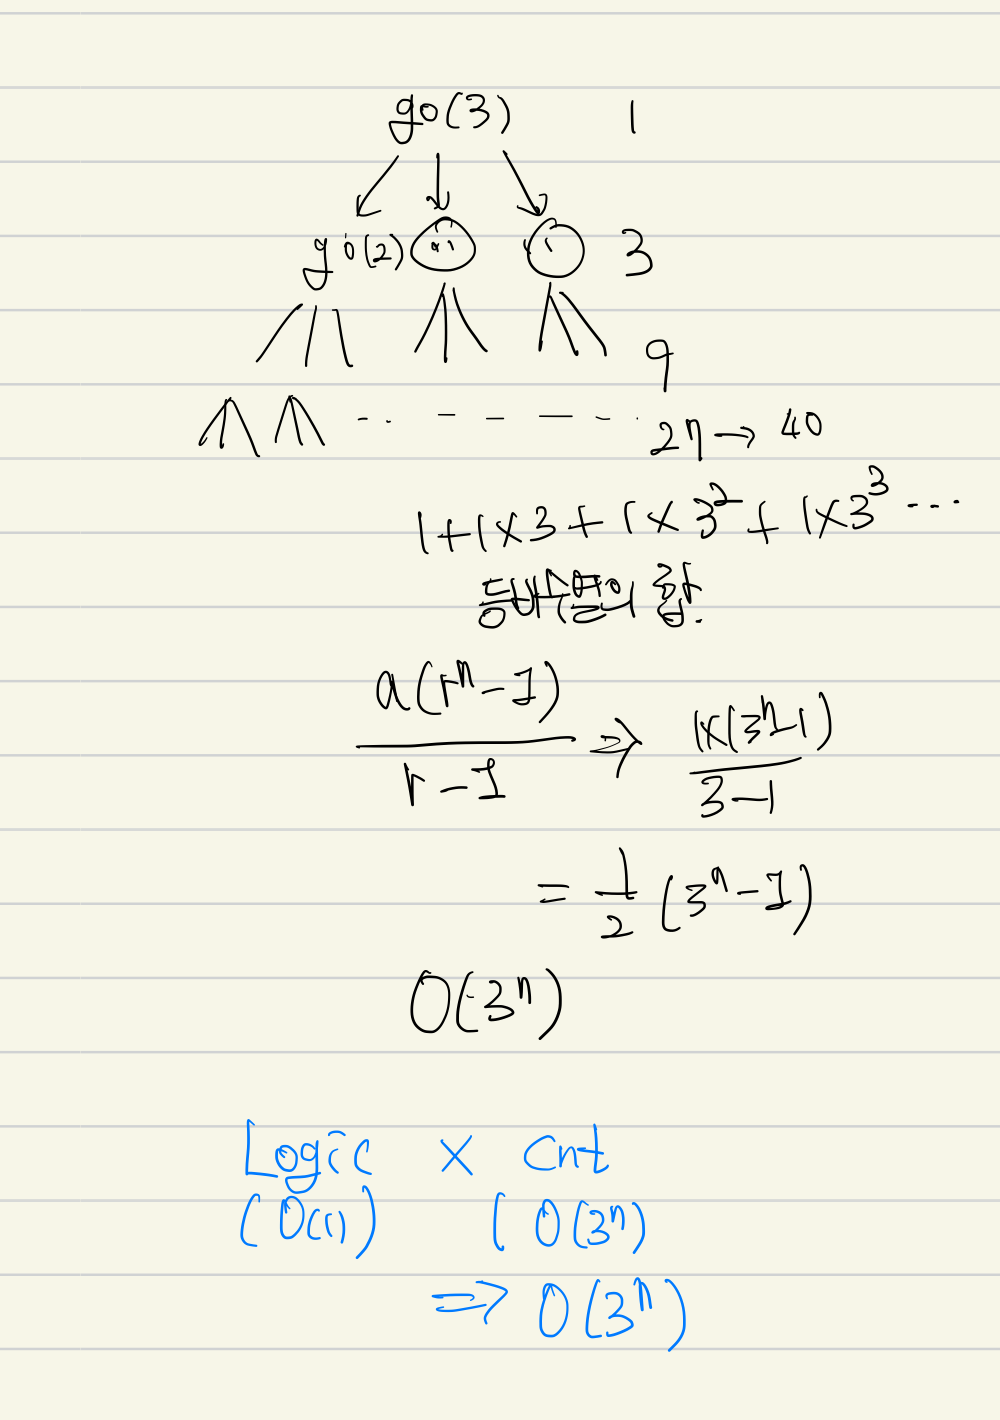 go(3) 1
go(2) 3
9
27 → 40
1+1×3+1×3²+1×3³ ...
등비수열의 합.
a(rⁿ-1)
r-1
⇒
1×(3ⁿ-1)
3-1
= 1/2 (3ⁿ-1)
O(3ⁿ)
Logic × Cnt
(O(1)) (O(3ⁿ)
⇒ O(3ⁿ)